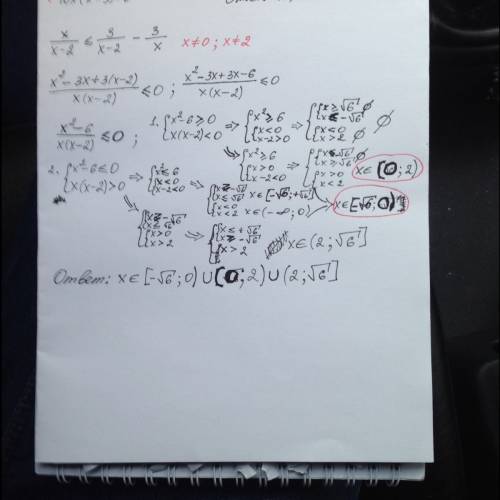 x/(x-2) ≤ 3/(x-2) - 3/x x≠0; x≠2
(x²-3x+3(x-2))/(x(x-2)) ≤0 ; (x²-3x+3x-6)/(x(x-2)) ≤0
(x²-6)/(x(x-2)) ≤0 ; 1. {x²-6≥0 {x(x-2)<0 ⇒ {x²≥6 {x<0 {x-2>0 ⇒ {x≥√6 {x≤-√6 ∅ {x<0 {x>2 ∅ ∅
⇒ {x²≥6 {x>0 {x-2<0 ⇒ {x≤-√6 {x≥√6 ∅ {x>0 {x<2 x∈(0; 2)
2. {x²-6≤0 {x(x-2)>0 ⇒ {x²≤6 {x<0 {x-2<0 ⇒ {x≥-√6 {x≤√6 x∈[-√6;+√6] {x<0 {x<2 x∈(-∞; 0) x∈[-√6; 0)
⇒ {x≥-√6 {x≤√6 {x>0 {x>2 ⇒ {x≤+√6 {x≥-√6 {x>2 x∈(2; √6]
Ответ: x∈[-√6; 0)∪(0; 2)∪(2; √6]